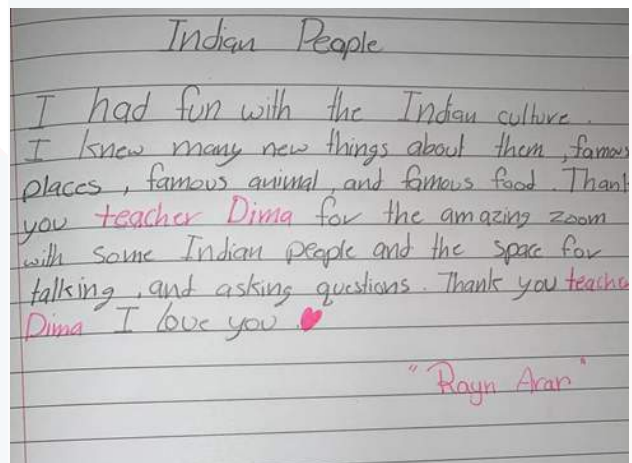 Indian People
I had fun with the Indian culture.
I knew many new things about them, famous
places, famous animal, and famous food. Thank
you teacher Dima for the amazing zoom
with some Indian people and the space for
talking, and asking questions. Thank you teacher
Dima I love you.
"Rayn Arar"